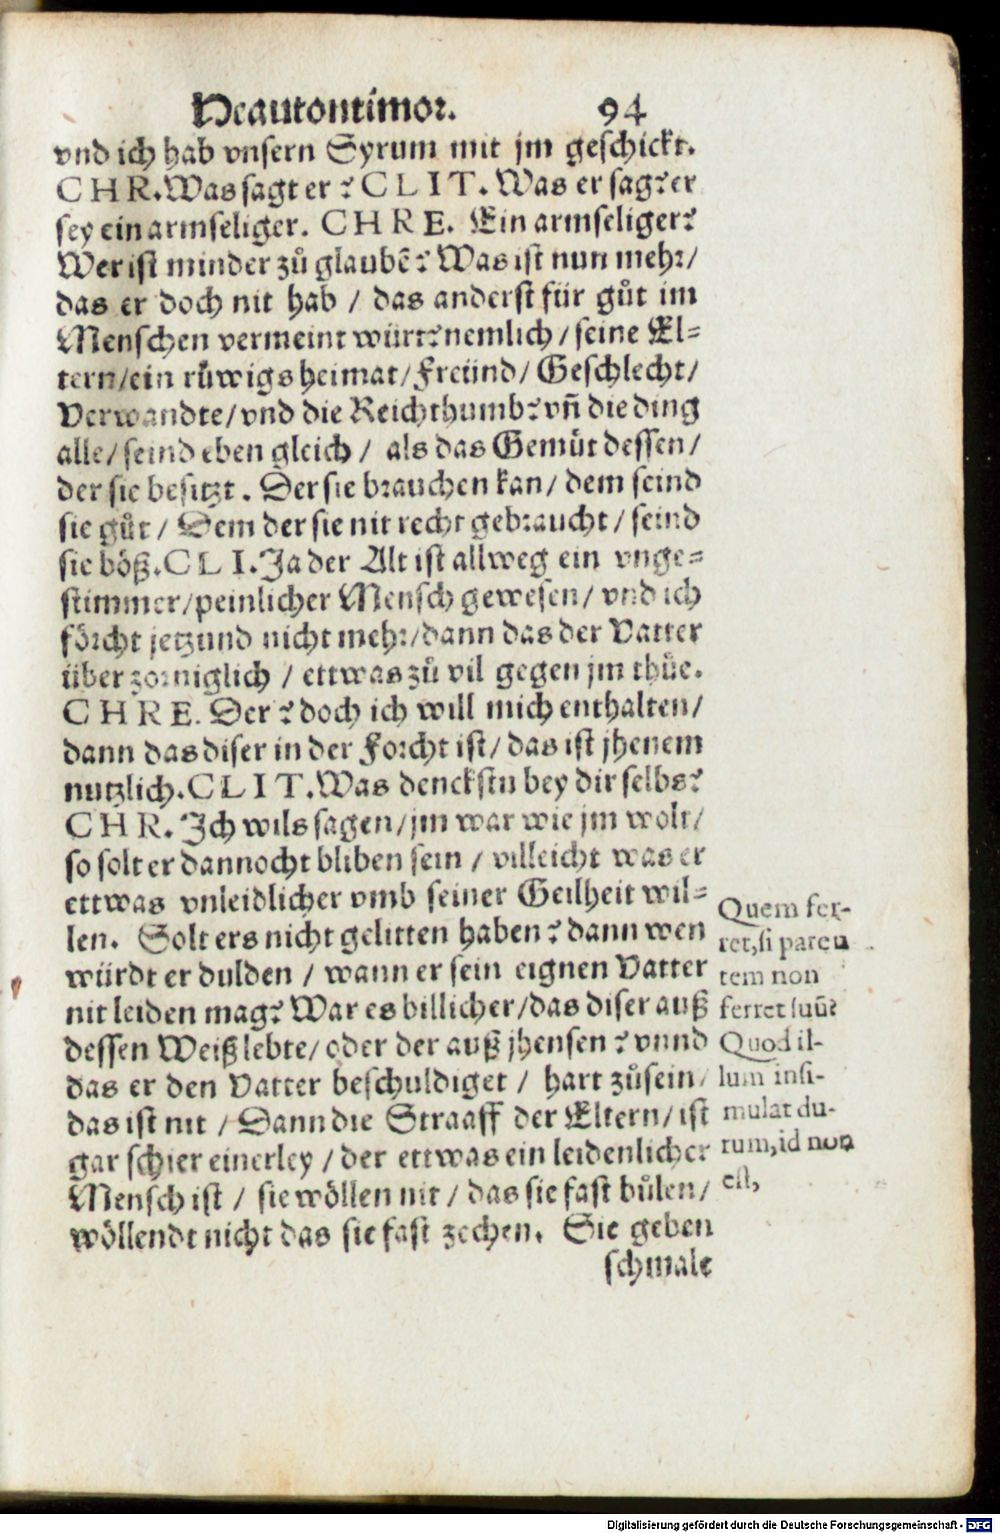 Heautontimor. 94
vnd ich hab vnsern Syrum mit jm geschickt.
CHR. Was sagt er? CLIT. Was er sag? er
sey ein armseliger. CHRE. Ein armseliger?
Wer ist minder zů glaubē? Was ist nun mehr/
das er doch nit hab / das anderst für gůt im
Menschen vermeint würt? nemlich / seine El-
tern/ein růwigs heimat/Freünd/Geschlecht/
Verwandte/vnd die Reichthumb? vñ die ding
alle/seind eben gleich / als das Gemüt dessen/
der sie besitzt. Der sie brauchen kan/ dem seind
sie gůt / Dem der sie nit recht gebraucht / seind
sie böß. CLI. Ja der Alt ist allweg ein vnge-
stimmer/peinlicher Mensch gewesen/ vnd ich
förcht jetzund nicht mehr/dann das der Vatter
über zorniglich / ettwas zů vil gegen jm thüe.
CHRE. Der? doch ich will mich enthalten/
dann das diser in der Forcht ist/ das ist jhenem
nutzlich. CLIT. Was denckstu bey dir selbs?
CHR. Ich wils sagen/jm war wie jm wolt/
so solt er dannocht bliben sein / villeicht was er
ettwas vnleidlicher vmb seiner Geilheit wil-
len. Solt ers nicht gelitten haben? dann wen
würdt er dulden / wann er sein eignen Vatter
nit leiden mag? War es billicher/das diser auß
dessen Weiß lebte/ oder der auß jhensen? vnnd
das er den Vatter beschuldiget / hart zůsein/
das ist nit / Dann die Straaff der Eltern/ ist
gar schier einerley / der ettwas ein leidenlicher
Mensch ist / sie wöllen nit / das sie fast bůlen/
wöllendt nicht das sie fast zechen. Sie geben
schmale
Quem fer-
ret, si paren
tem non
ferret suũ?
Quod il-
lum insi-
mulat du-
rum, id non
est,
Digitalisierung gefördert durch die Deutsche Forschungsgemeinschaft - DFG